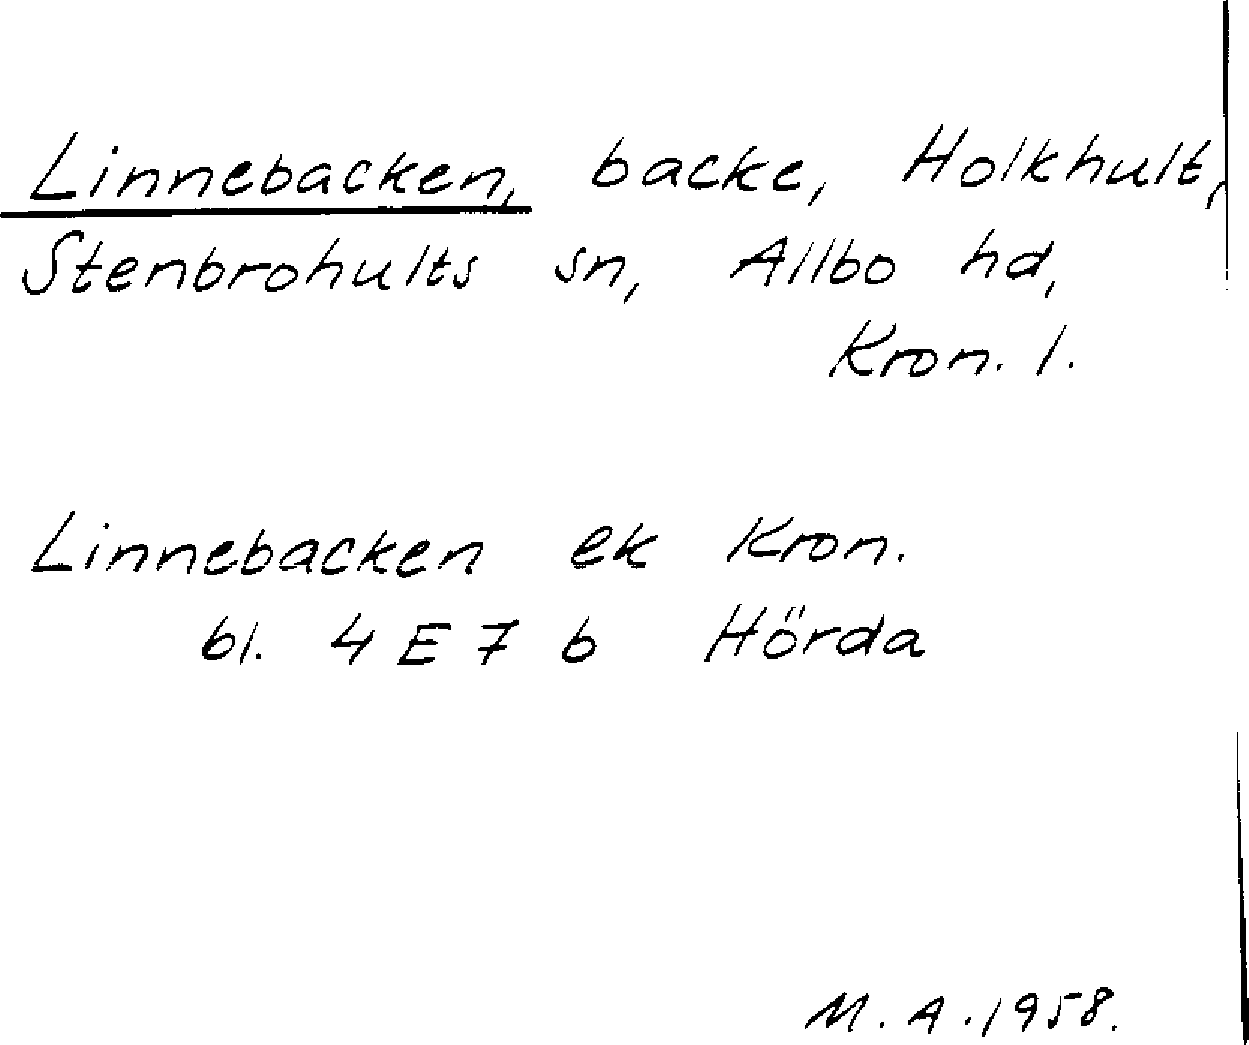 Linnebacken, backe, Holkhult,
Stenbrohults sn, Allbo hd,
Kron. l.
Linnebacken ek Kron.
bl. 4 E 7 b Hörda
M. A. 1958.